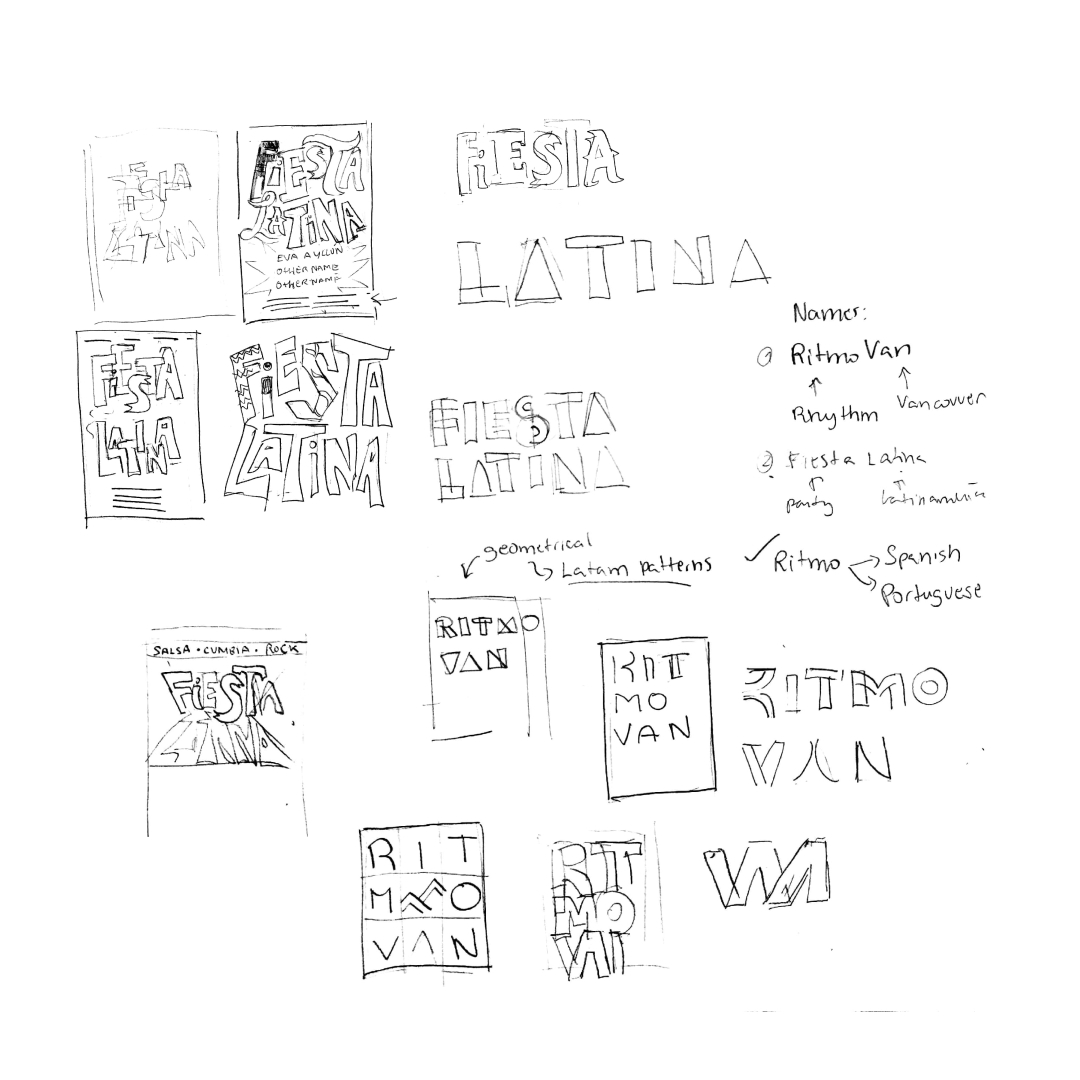 FIESTA
LATINA
FiESTA
LATiNA
EVA AYLLÓN
OTHER NAME
OTHER NAME
FiESTA
LATINA
FIESTA
LATINA
FiESTA
LATiNA
FIESTA
LATINA
Names:
① Ritmo Van
Rhythm
Vancouver
② Fiesta Latina
party
Latinamerica
✓ Ritmo
Spanish
Portuguese
geometrical
Latam patterns
SALSA • CUMBIA • ROCK
FiESTA
LATINA
RITMO
VAN
RIT
MO
VAN
RITMO
VAN
RIT
MO
VAN
RIT
MO
VAN